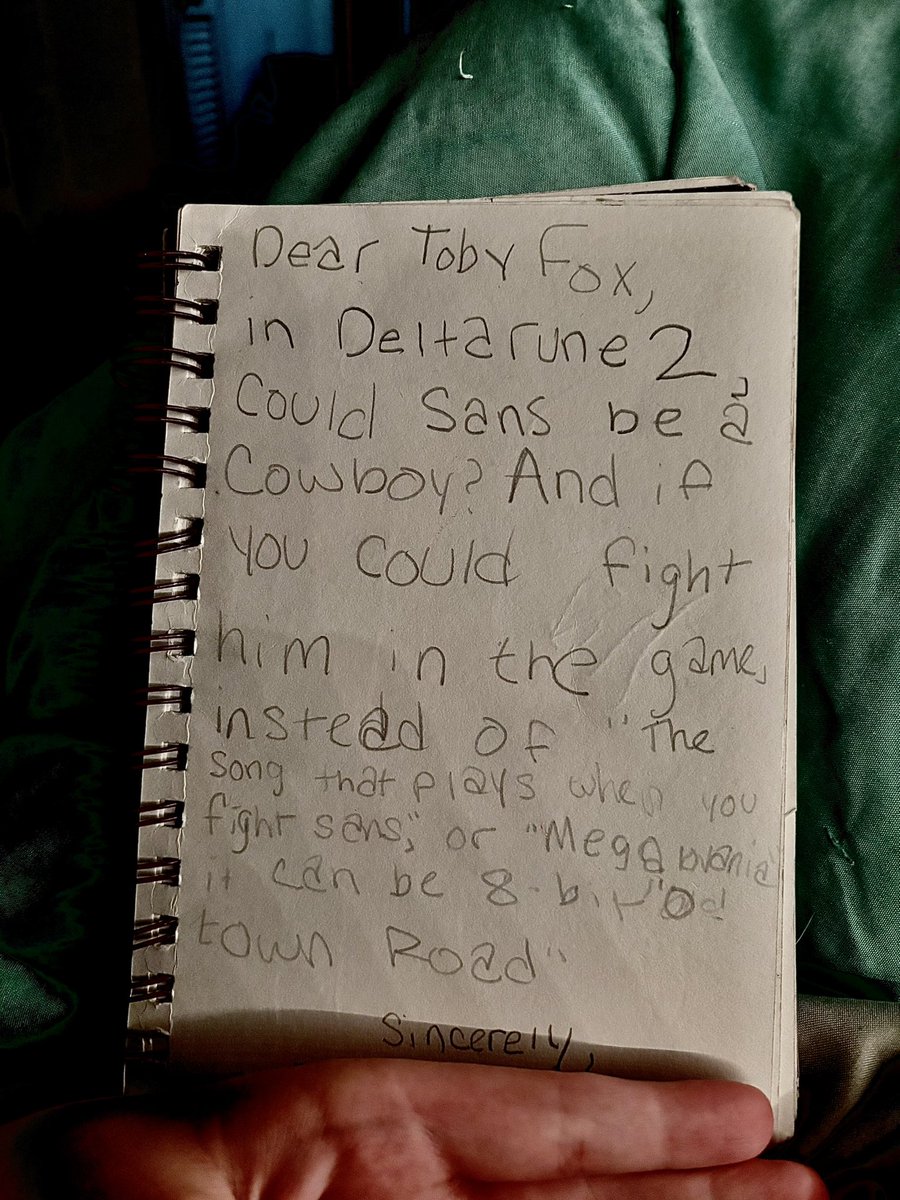 Dear Toby Fox,
in Deltarune 2,
Could Sans be a
Cowboy? And if
you could fight
him in the game,
instead of "The
song that plays when you
fight sans," or "Megalovania
it can be 8-bit "Old
town Road"
Sincerely,